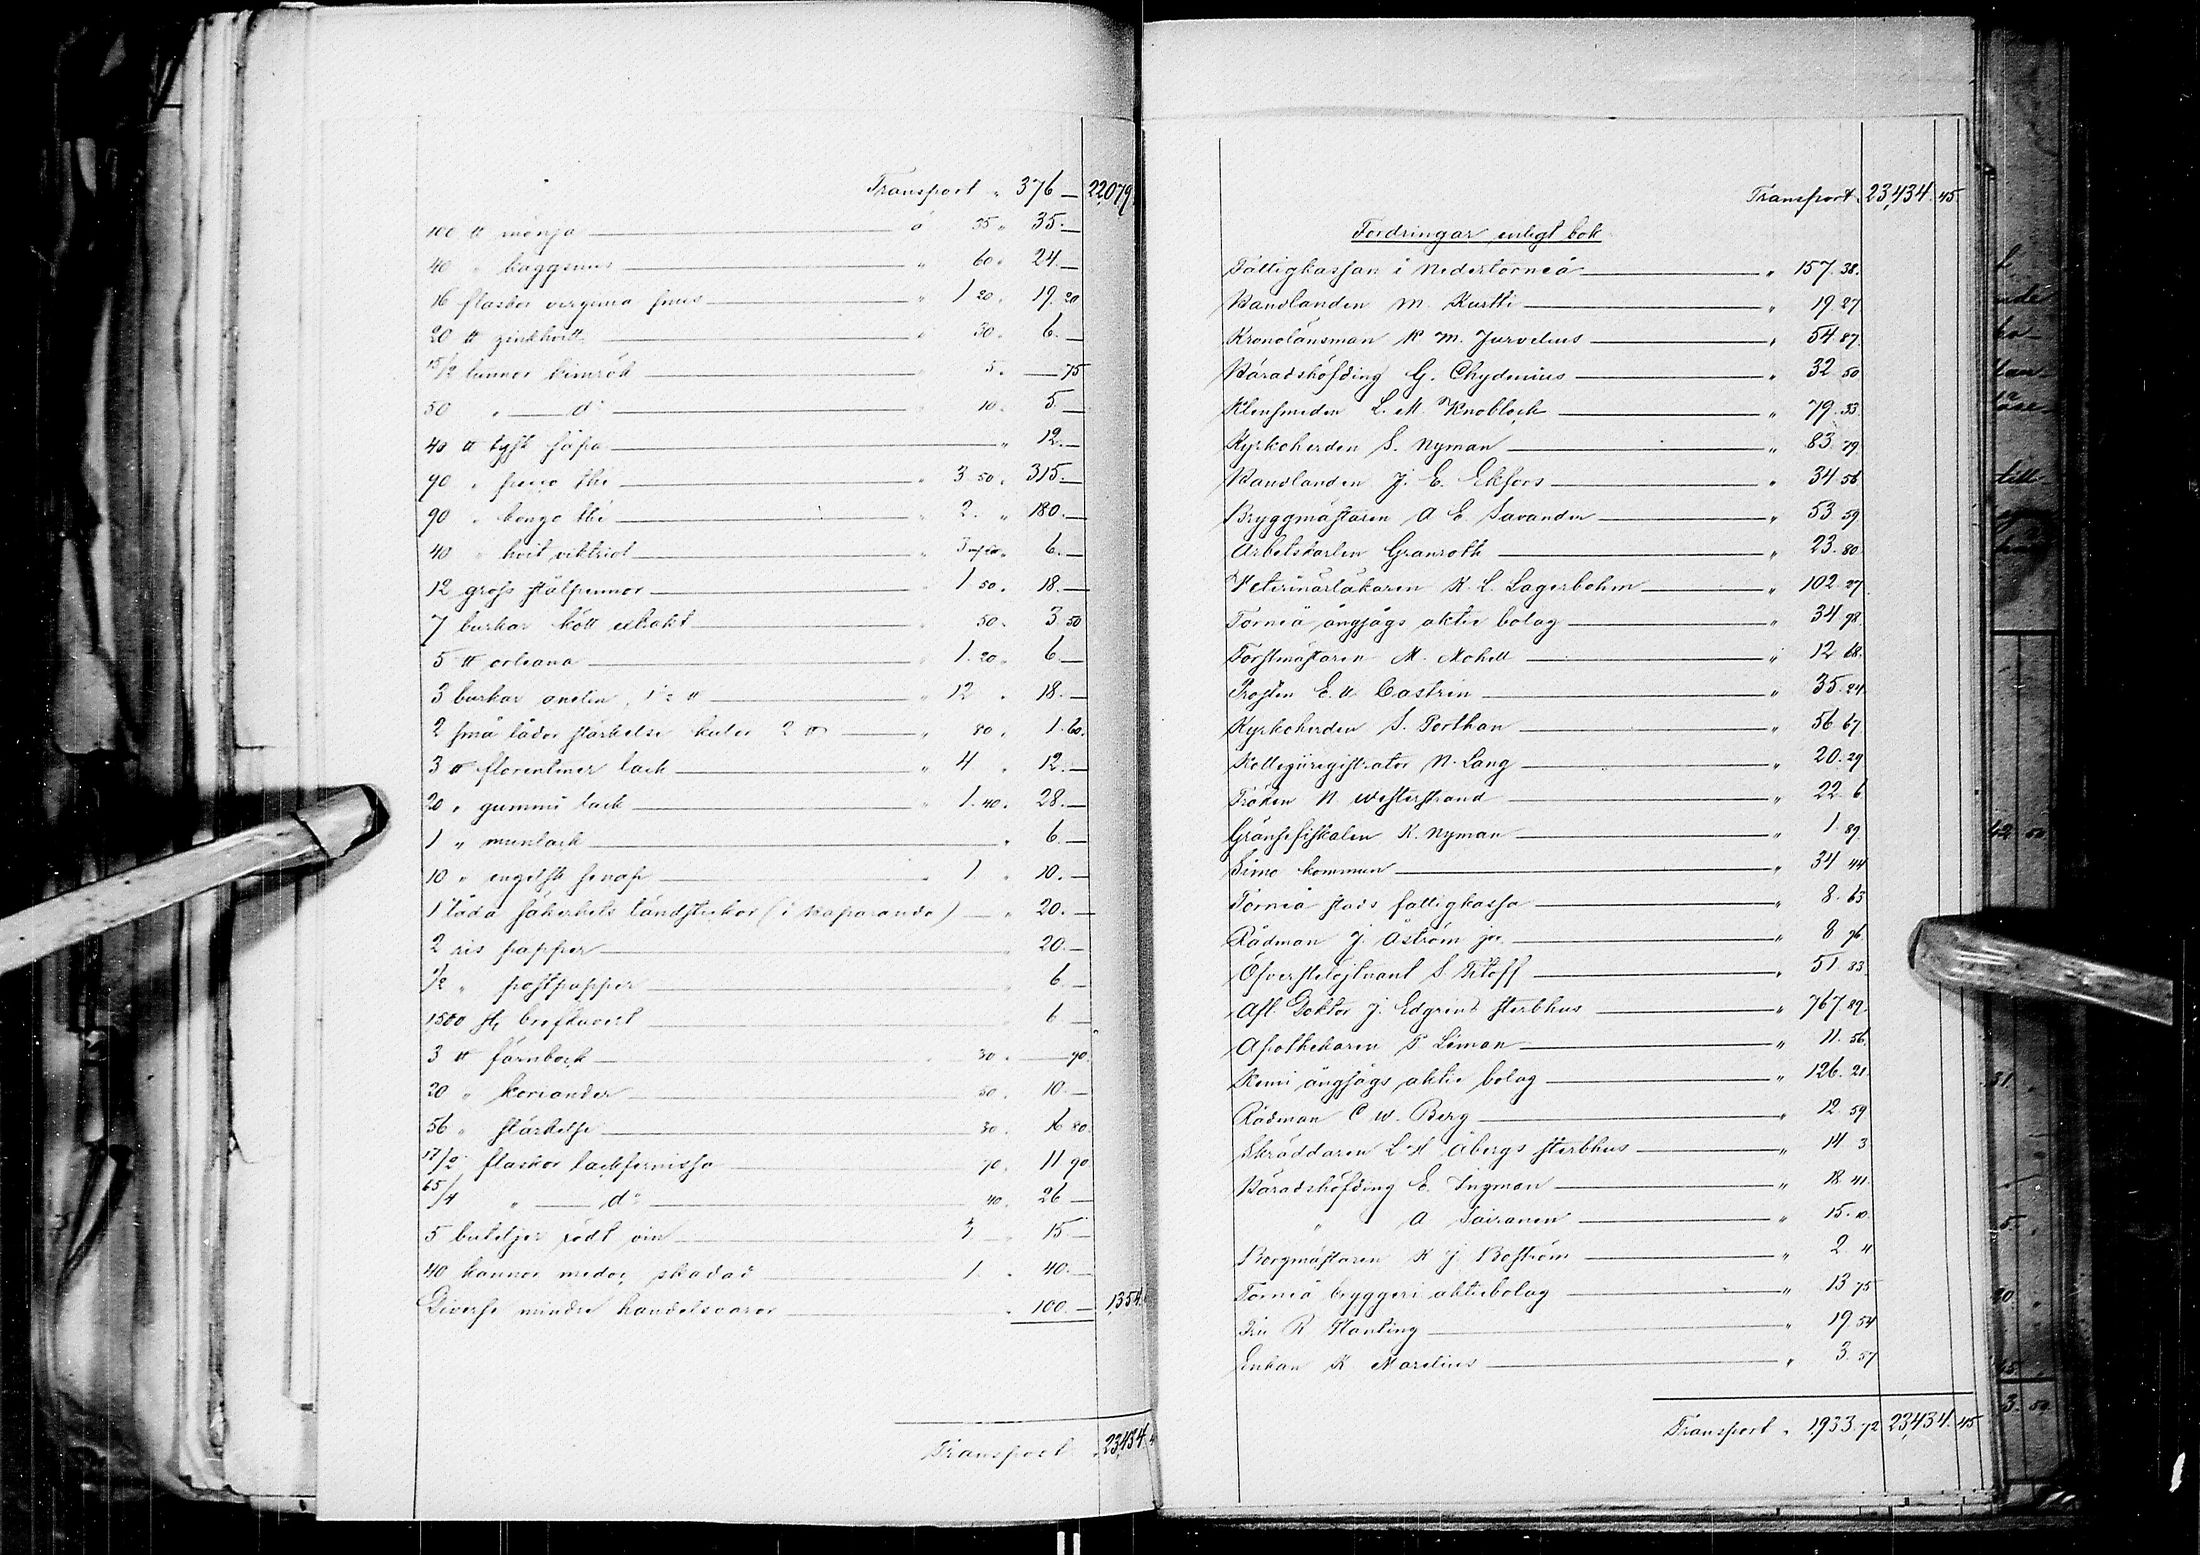 Transport " 376 — 22,079
100 ℔ mönja — á 35 " 35.—
40 " baggsnus — " 60 " 24.—
16 flaskor virginia snus — " 1 20 " 19. 20
20 ℔ zinkhvitt — " 30 " 6.—
15/2 tunnor kimrök — " 5. — 75
50 " — d:o — " 10. 5.—
40 ℔ tysk såpa — " 12.—
90 " the — " 3 50 " 315.—
90 " congo the — " 2. " 180.—
40 " hvit viktriol — " 6.—
12 gross stålpennor — " 1 50 " 18.—
7 burkar kött extrakt — " 50 " 3 50
5 ℔ orleana — " 1. 20 " 6.—
3 burkar — " 12 " 18.—
2 små lådor stärkelse — " 80 " 1. 60.
3 ℔ florentiner lack — " 4 " 12.—
20 " gummi lack — " 1. 40 " 28.—
1 " munlack — " 6.—
10 " engelsk senap — " 1 " 10.—
1 låda säkerhets tändstickor (i Haparanda) — " 20.—
2 ris papper — " 20.—
1/2 " postpapper — " 6.—
1,500 st. brefkuvert — " 6
3 ℔ färnbock — 30 " — 90.
20 " koriander — 50 " 10.—
56 " stärkelse — 30 " 16 80.
17/2 flaskor lackfernissa — 70 " 11 90
65/4 " — d:o — 40 " 26 —
5 buteljer rödt vin — 3 " 15.—
40 kannor skadad — 1. " 40.—
Diverse mindre handelsvaror — " 100. — 1,354.
Transport " 23,434. 4
Transport " 23,434. 45
Fordringar enligt bok
Fattigkassan i Nedertorneå — " 157. 38.
Handlanden M. Kurtti — " 19. 27
Kronolänsman K M. Jurvelius — " 54. 87.
Häradshöfding G. Chydenius — " 32 50
Klensmeden L. M. Knobloch — " 79. 33.
Kyrkoherden S. Nyman — " 83. 79
Handlanden J. E. Ekfors — " 34 56
Bryggmästaren A E. Savander — " 53 59
Arbetskarlen Granroth — " 23. 80.
Veterinärläkaren K. L. Lagerbohm — " 102. 27
Torneå ångsågs aktie bolag — " 34. 98.
Forstmästaren M. Mohell — " 12 68.
Prosten E. M Castrén — " 35. 24
Kyrkoherden S. Porthan — " 56 67.
Kollegiiregistrator N. Lang — " 20. 29
Fröken N Westerstrand — " 22. 6
Gränsefiskalen K. Nyman — " 1. 89.
Simo kommun — " 34 44
Torneå stads fattigkassa — " 8. 63
Rådman J. Åström jor — " 8 96
Öfverstelöjtnant S. Titoff — " 51. 83.
Afl. Doktor J. Edgrens sterbhus — " 767. 89.
Apothekaren P Liman — " 11. 56.
Kemi ångsågs aktie bolag — " 126. 21.
Rådman C W. Berg — " 12. 59
Skräddaren L. M Åbergs sterbhus — " 14 3
Häradshöfding E. Ingman — " 18 41.
" A Tairanen — " 15. 10.
Borgmästaren K J. Boström — " 2 "
Torneå bryggeri aktiebolag — " 13 75
Fru R Planting — " 19. 54
Enkan K Marelius — " 3. 57
Transport " 1,933. 72 23,434. 45